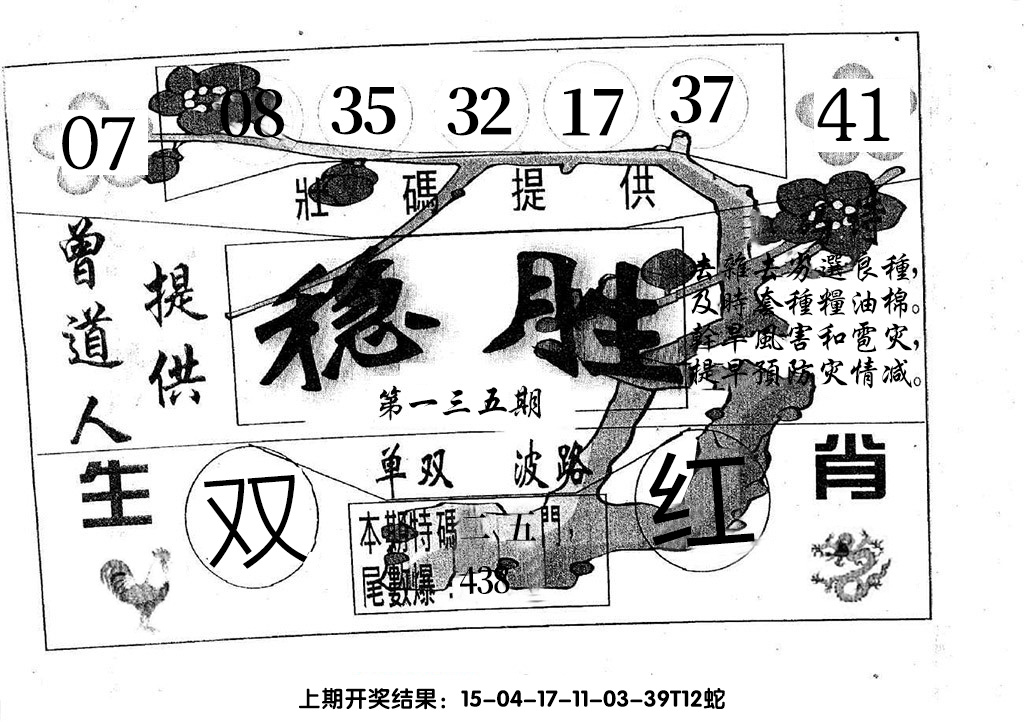 07 08 35 32 17 37 41
壯碼提供
特
曾道人
提供
稳胜
去雜去劣選良種,
及時套種糧油棉。
幹旱風害和雹灾,
提早預防灾情减。
第一三五期
单双 波路
生肖
双
红
本期特碼二、五門,
尾數爆:438
上期开奖结果：15-04-17-11-03-39T12蛇